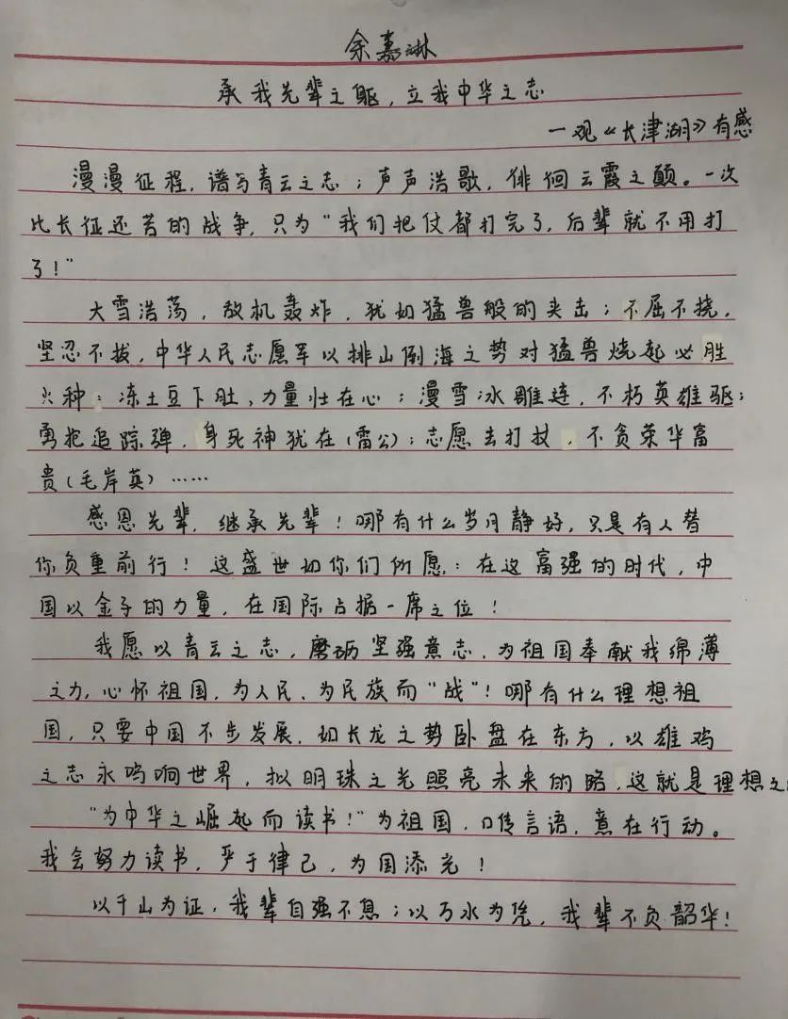 余嘉琳
承我先辈之躯，立我中华之志
一观《长津湖》有感
漫漫征程，谱写青云之志；声声浩歌，徘徊云霞之颠。一次
比长征还苦的战争，只为“我们把仗都打完了，后辈就不用打
了！”
大雪浩荡，敌机轰炸，犹如猛兽般的夹击；不屈不挠，
坚忍不拔，中华人民志愿军以排山倒海之势对猛兽烧起必胜
火种：冻土豆下肚，力量壮在心；漫雪冰雕连，不朽英雄躯；
勇抱追踪弹，身死神犹在（雷公）；志愿去打仗，不贪荣华富
贵（毛岸英）……
感恩先辈，继承先辈！哪有什么岁月静好，只是有人替
你负重前行！这盛世如你们所愿：在这富强的时代，中
国以金子的力量，在国际占据一席之位！
我愿以青云之志，磨砺坚强意志，为祖国奉献我绵薄
之力，心怀祖国，为人民、为民族而“战”！哪有什么理想祖
国，只要中国不步发展，如长龙之势卧盘在东方，以雄鸡
之志永鸣响世界，拟明珠之光照亮未来的路，这就是理想之
“为中华之崛起而读书！”为祖国，口传言语，意在行动。
我会努力读书，严于律己，为国添光！
以千山为证，我辈自强不息；以万水为凭，我辈不负韶华！